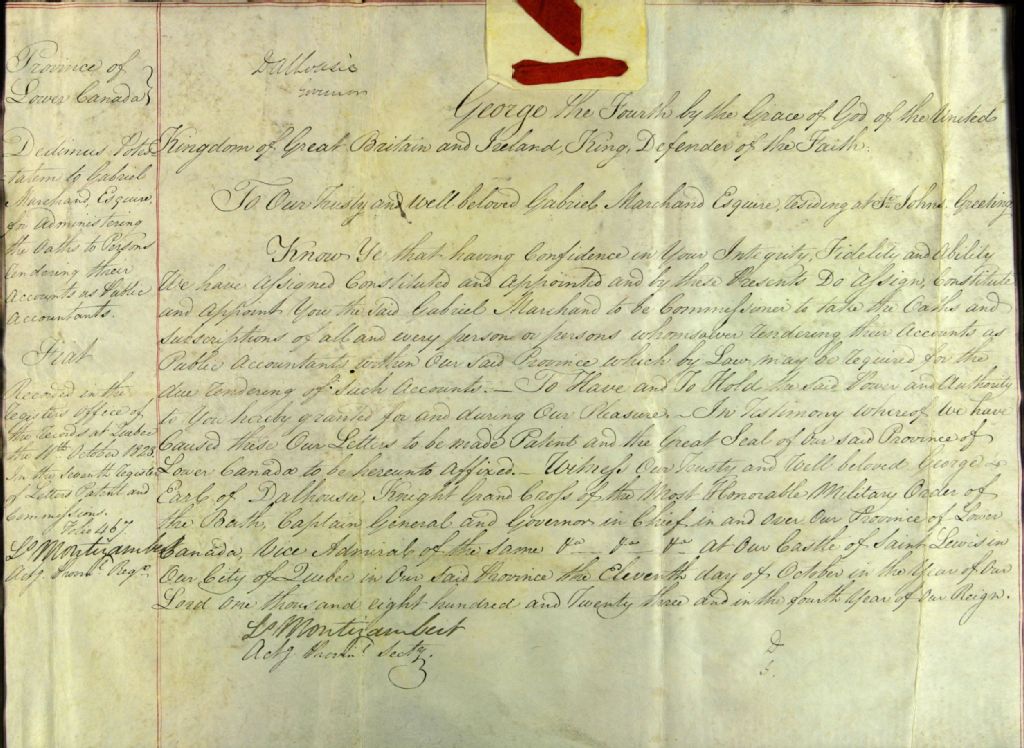 Province of
Lower Canada
Dedimus Potes
tatem to Gabriel
Marchand, Esquire,
for Administering
the Oaths to Persons
rendering their
Accounts as Public
Accountants.
Fiat
Recorded in the
Registers Office of
the Records at Quebec
the 11th October 1823
In the Seventh Register
of Letters Patent and
Commissions.
Folio 467
Ls Montizambert
Actg Provinl Regr.
Dalhousie
Governor
George the Fourth by the Grace of God of the United
Kingdom of Great Britain and Ireland, King, Defender of the Faith.
To Our Trusty and Well beloved Gabriel Marchand Esquire, residing at St Johns. Greeting
Know Ye that having Confidence in Your Integrity, Fidelity and Ability
We have Assigned Constituted and Appointed and by these Presents Do Assign, Constitute
and Appoint You the said Gabriel Marchand to be Commissioner to take the Oaths and
subscriptions of all and every person or persons whomsoever rendering their Accounts as
Public Accountants within Our said Province which by Law may be required for the
due rendering of such Accounts. — To Have and To Hold the said Power and Authority
to You hereby granted for and during Our Pleasure. — In Testimony whereof We have
Caused these Our Letters to be made Patent and the Great Seal of Our said Province of
Lower Canada to be hereunto affixed. — Witness Our Trusty and Well beloved George
Earl of Dalhousie, Knight Grand Cross of the Most Honorable Military Order of
the Bath, Captain General and Governor in Chief in and over Our Province of Lower
Canada, Vice Admiral of the same &c — &c — &c at Our Castle of Saint Lewis in
Our City of Quebec in Our said Province the Eleventh day of October in the Year of Our
Lord One thousand eight hundred and Twenty three and in the fourth Year of Our Reign.
Ls Montizambert
Actg Provinl Secty.